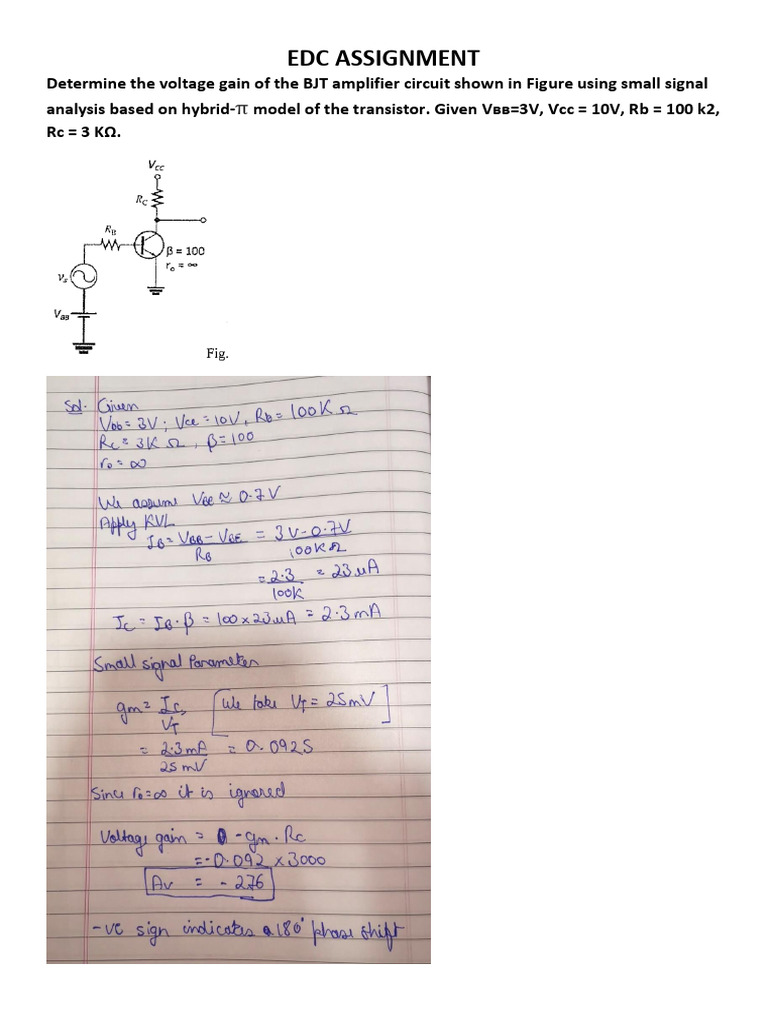 EDC ASSIGNMENT
Determine the voltage gain of the BJT amplifier circuit shown in Figure using small signal
analysis based on hybrid-π model of the transistor. Given VBB=3V, Vcc = 10V, Rb = 100 k2,
Rc = 3 KΩ.
VCC
RC
RB
β = 100
ro = ∞
vs
VBB
Fig.
Sol. Given
Vbb = 3V ; Vcc = 10V, RB = 100K Ω
Rc = 3K Ω , β = 100
ro = ∞
We assume VBE ≈ 0.7V
Apply KVL
IB = VBB - VBE / RB = 3V - 0.7V / 100KΩ
= 2.3 / 100K = 23 uA
Ic = IB . β = 100 x 23uA = 2.3 mA
Small signal Parameter
gm = Ic / VT [We take VT = 25mV]
= 2.3mA / 25 mV = 0.092S
Since ro = ∞ it is ignored
Voltage gain = - gm . Rc
= - 0.092 x 3000
Av = - 276
-ve sign indicates a 180° phase shift